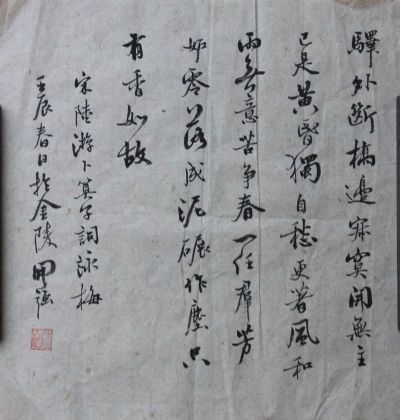 驛外斷橋邊寂寞開無主
已是黃昏獨自愁更著風和
雨無意苦争春一任羣芳
妒零落成泥碾作塵只
有香如故
宋陸游卜算子詞詠梅
壬辰春日於金陵